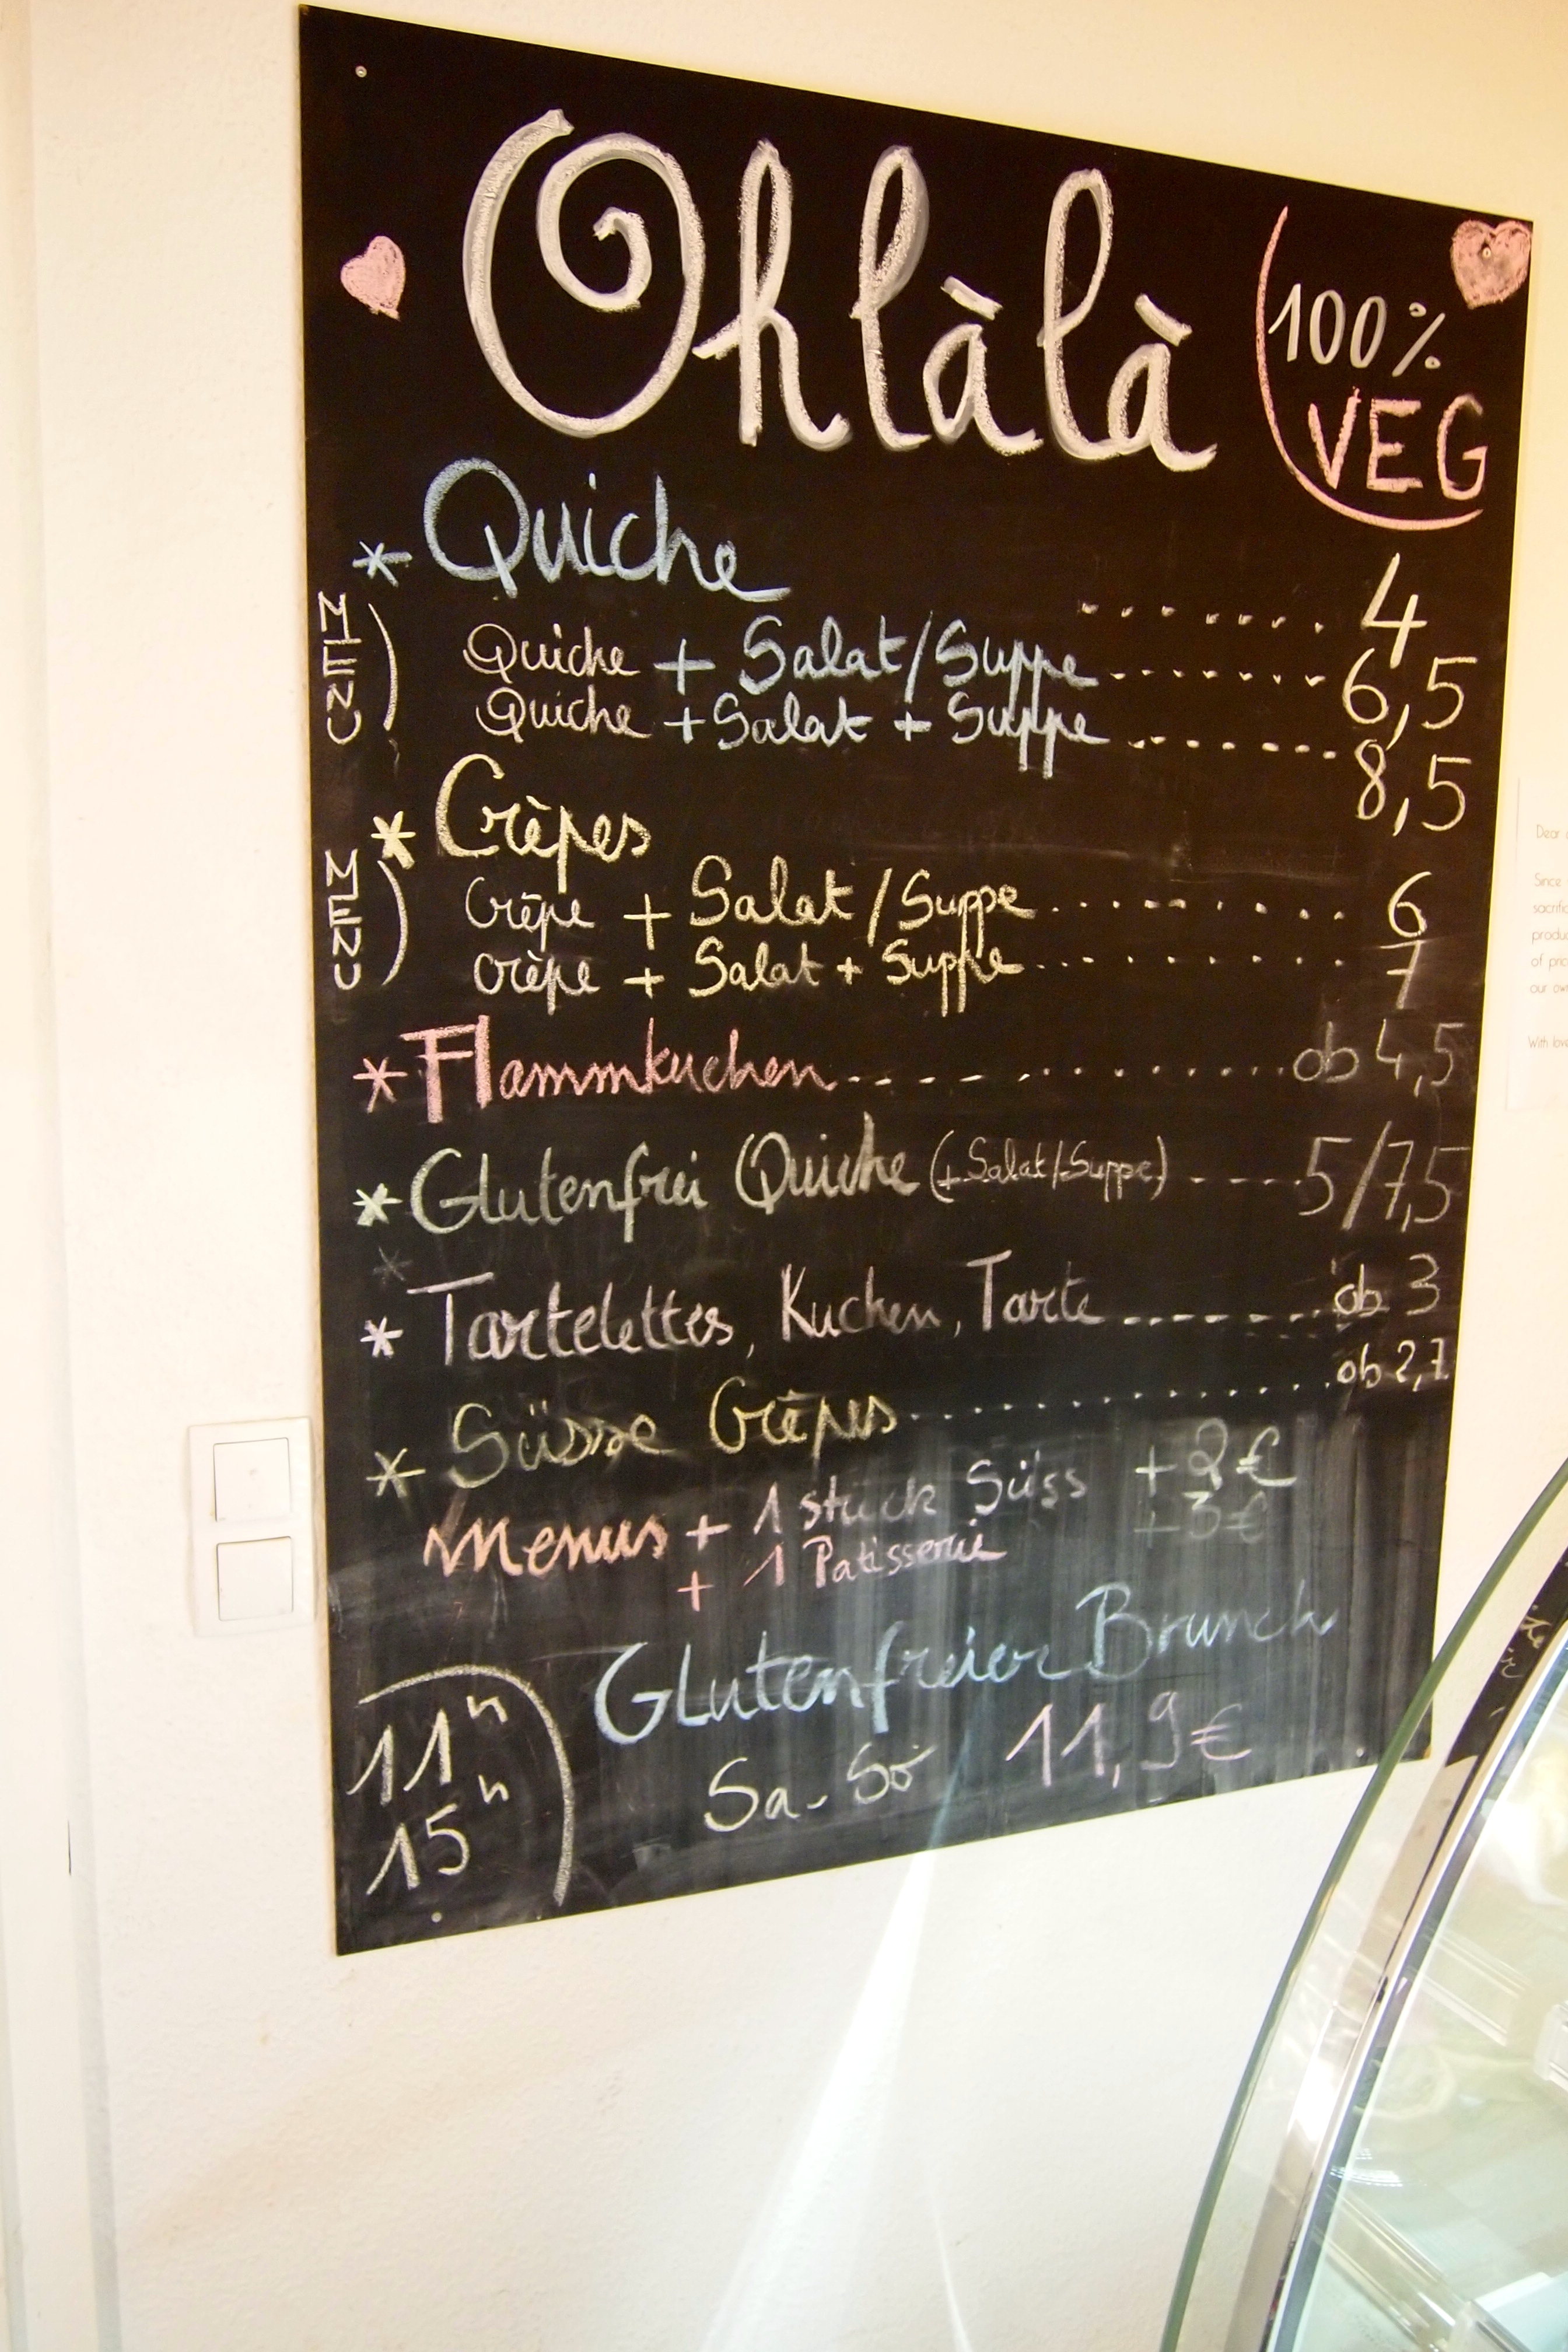 Ohlàlà
100%
VEG
* Quiche ....... 4
MENU
Quiche + Salat/Suppe ....... 6,5
Quiche + Salat + Suppe ....... 8,5
* Crèpes
MENU
Crêpe + Salat/Suppe ........ 6
Crèpe + Salat + Suppe ........ 7
* Flammkuchen ............ ob 4,5
* Glutenfrei Quiche (+Salat/Suppe) ..... 5/7,5
* Tartelettes, Kuchen, Tarte ....... ob 3
* Süsse Crêpes ............ ob 2,7
Menus + 1 stück Süss +2€
+ 1 Patisserie +3€
Glutenfreier Brunch
Sa-So 11,9€
11h
15h
Dear
Since
of
our
With love